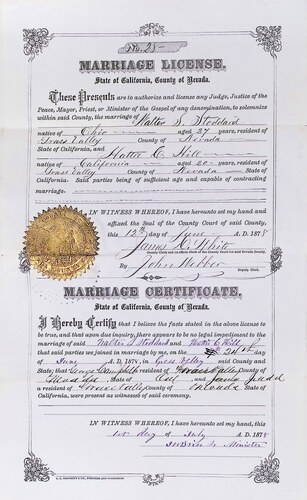 No. 28
MARRIAGE LICENSE.
State of California, County of Nevada.
These Presents are to authorize and license any Judge, Justice of the
Peace, Mayor, Priest, or Minister of the Gospel of any denomination, to solemnize
within said County, the marriage of Walter S. Stoddard
native of Ohio aged 27 years, resident of
Grass Valley County of Nevada
State of California, and Hattie C. Hill
native of California aged 20 years, resident of
Grass Valley, County of Nevada State of
California. Said parties being of sufficient age and capable of contracting
marriage.
IN WITNESS WHEREOF, I have hereunto set my hand and
affixed the Seal of the County Court of said County,
this 12th day of June A. D. 1878
James D. White
By John Webber
Deputy Clerk.
MARRIAGE CERTIFICATE.
State of California, County of Nevada.
I Hereby Certify that I believe the facts stated in the above license to
be true, and that upon due inquiry, there appears to be no legal impediment to the
marriage of said Walter S. Stoddard and Hattie C. Hill
that said parties were joined in marriage by me, on the 24th of
June A. D. 1878, in Grass Valley said County and
State; that George Campbell a resident of Grass Valley County of
Nevada State of Cal and James Judd
a resident of Grass Valley County of Nevada State of
California, were present as witnesses of said ceremony.
IN WITNESS WHEREOF, I have hereunto set my hand, this
1st day of July A. D. 1878
Minister